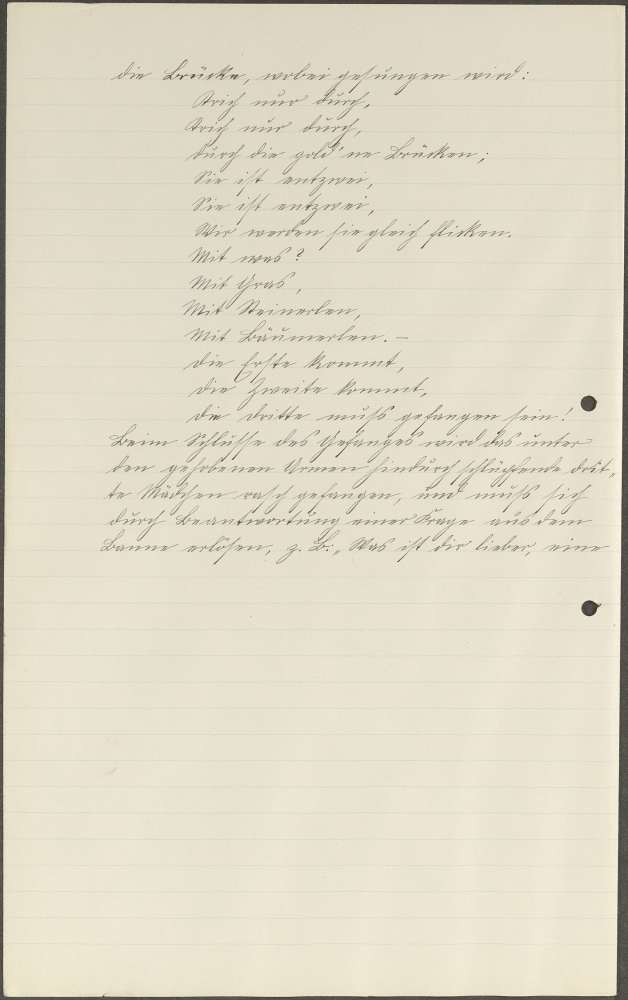 die Brücke, wobei gesungen wird:
Krich nur durch,
Krich nur durch,
durch die gold'ne Brücken;
Sie ist entzwei,
Sie ist entzwei,
Wir werden sie gleich flicken.
Mit was?
Mit Gras,
Mit Steinerlen,
Mit Bäumerlen. –
die Erste kommt,
die Zweite kommt,
die dritte muß gefangen sein!
Beim Schlusse des Gesanges wird das unter
den gehobenen Armen hindurch schlüpfende drit-
te Mädchen rasch gefangen, und muß sich
durch Beantwortung einer Frage aus dem
Banne erlösen, z. B.: „Was ist dir lieber, eine